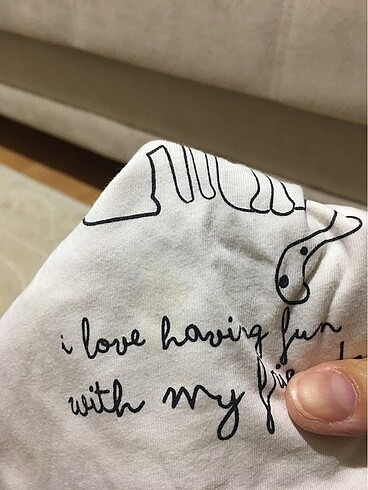 i love having fun
with my